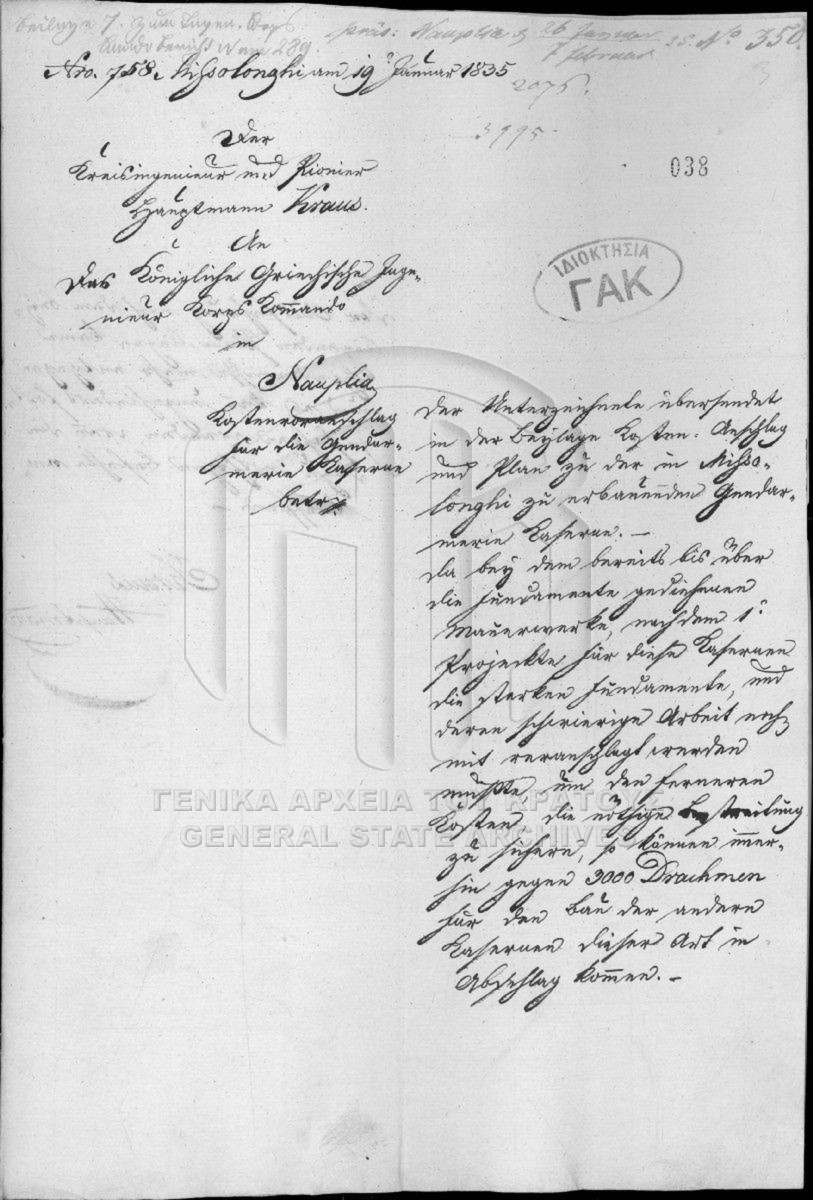 Beilage 7. zum Ingen. Corps
präs: Nauplia d 26 Januar / 7 Februar 35. No 350.
Nro. 758. Missolonghi am 19 Januar 1835
2076.
3995
038
Der
Kreisingenieur und Pionier
Hauptmann Kraus.
An
Das Königliche Griechische Inge-
nieur Korps Kommando
in
Nauplia
Kostenvoranschlag
für die Gendar-
merie Kaserne
betr.
ΙΔΙΟΚΤΗΣΙΑ
ΓΑΚ
Der Unterzeichnete übersendet
in der Beylage Kosten-Anschlag
und Plan zu der in Misso-
longhi zu erbauenden Gendar-
merie Kaserne. –
Da bey dem bereits bis über
die Fundamente gediehenen
Mauerwerke, nach dem 1.
Projeckte für diese Kasernen
die starken Fundamente, und
deren schwierige Arbeit noch
mit veranschlagt werden
mußte, um den ferneren
Kosten die nöthige Bestreitung
zu sichern, so können immer-
hin gegen 3000 Drachmen
für den Bau der andern
Kasernen dieser Art in
Abschlag kommen. –
ΓΕΝΙΚΑ ΑΡΧΕΙΑ ΤΟΥ ΚΡΑΤΟΥΣ
GENERAL STATE ARCHIVES